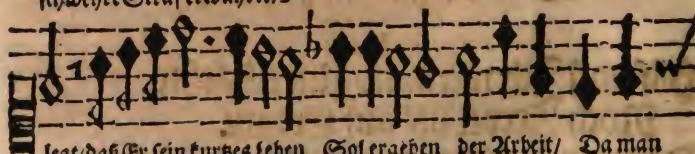 legt/daß Er sein kurtzes leben Sol ergeben der Arbeit/ Da man